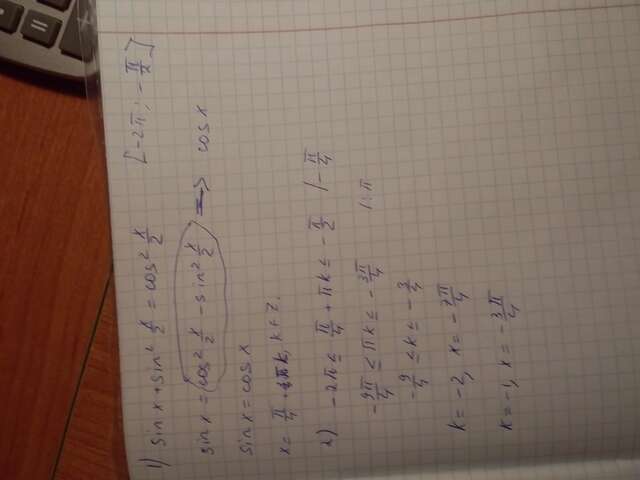 1) sin x + sin² x/2 = cos² x/2 [-2π; -π/2]
sin x = cos² x/2 - sin² x/2 => cos x
sin x = cos x
x = π/4 + πk, k ∈ Z.
2) -2π ≤ π/4 + πk ≤ -π/2 | -π/4
-9π/4 ≤ πk ≤ -3π/4 |:π
-9/4 ≤ k ≤ -3/4
k = -2, x = -7π/4
k = -1, x = -3π/4
=